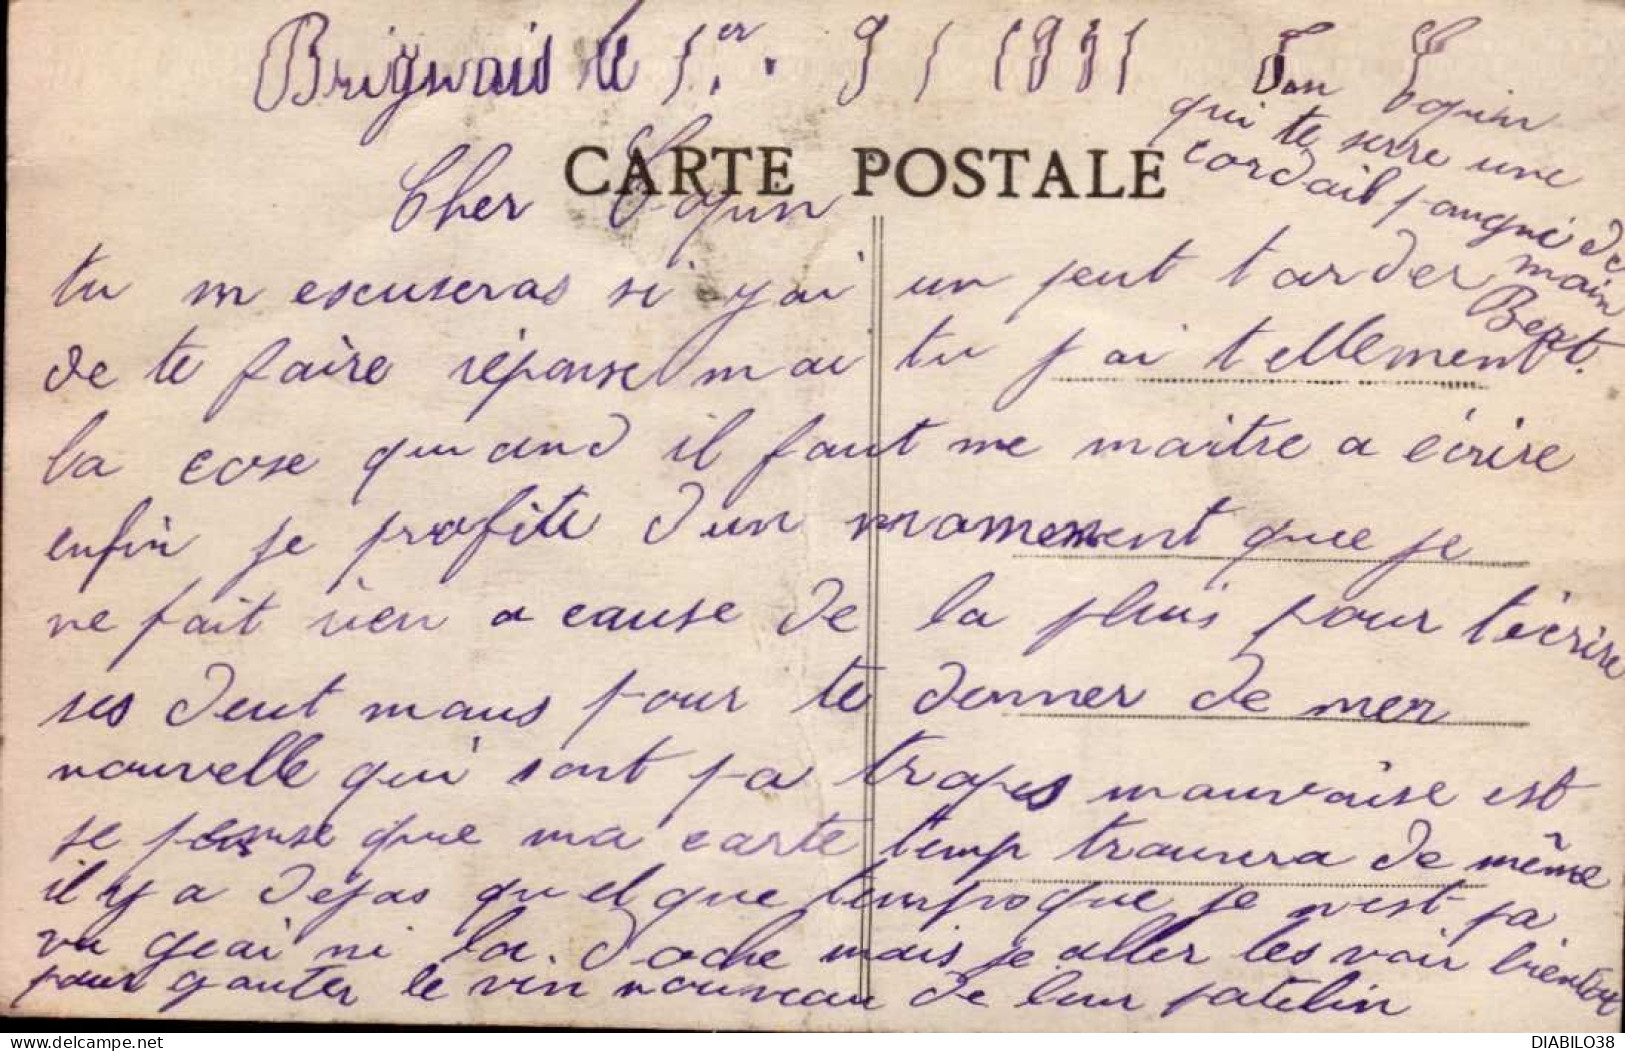 Brignais le 1er. 9 / 1931
CARTE POSTALE
Cher Copin
tu m escuseras si y ai un peut tarder
de te faire réponse mai tu s ai tellement
la cose quand il faut me maitre a écrire
enfin je profite d'un moment que je
ne fait rien a cause de la pluis pour t'écrire
ses deut maus pour te donner de mer
nouvelle qui sont pa trops mauvaise est
je pense que ma carte temp trouvera de même
il y a dejas quelque temps que je n'est pa
vu geai ni la Doche mais je aller les voir bientot
pour gouter le vin nouveau de leur patelin
Ton Copin
qui te serre une
cordail poingné de
main
Bert.
DIABILO38